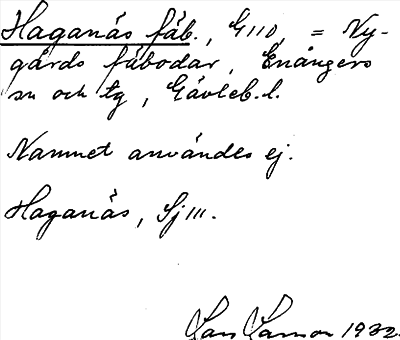 Haganäs fäb., G110, = Ny-
gårds fäbodar, Enångers
sn och tg, Gävleb. l.
Namnet användes ej.
Haganäs, Sj III.
Lars 1932